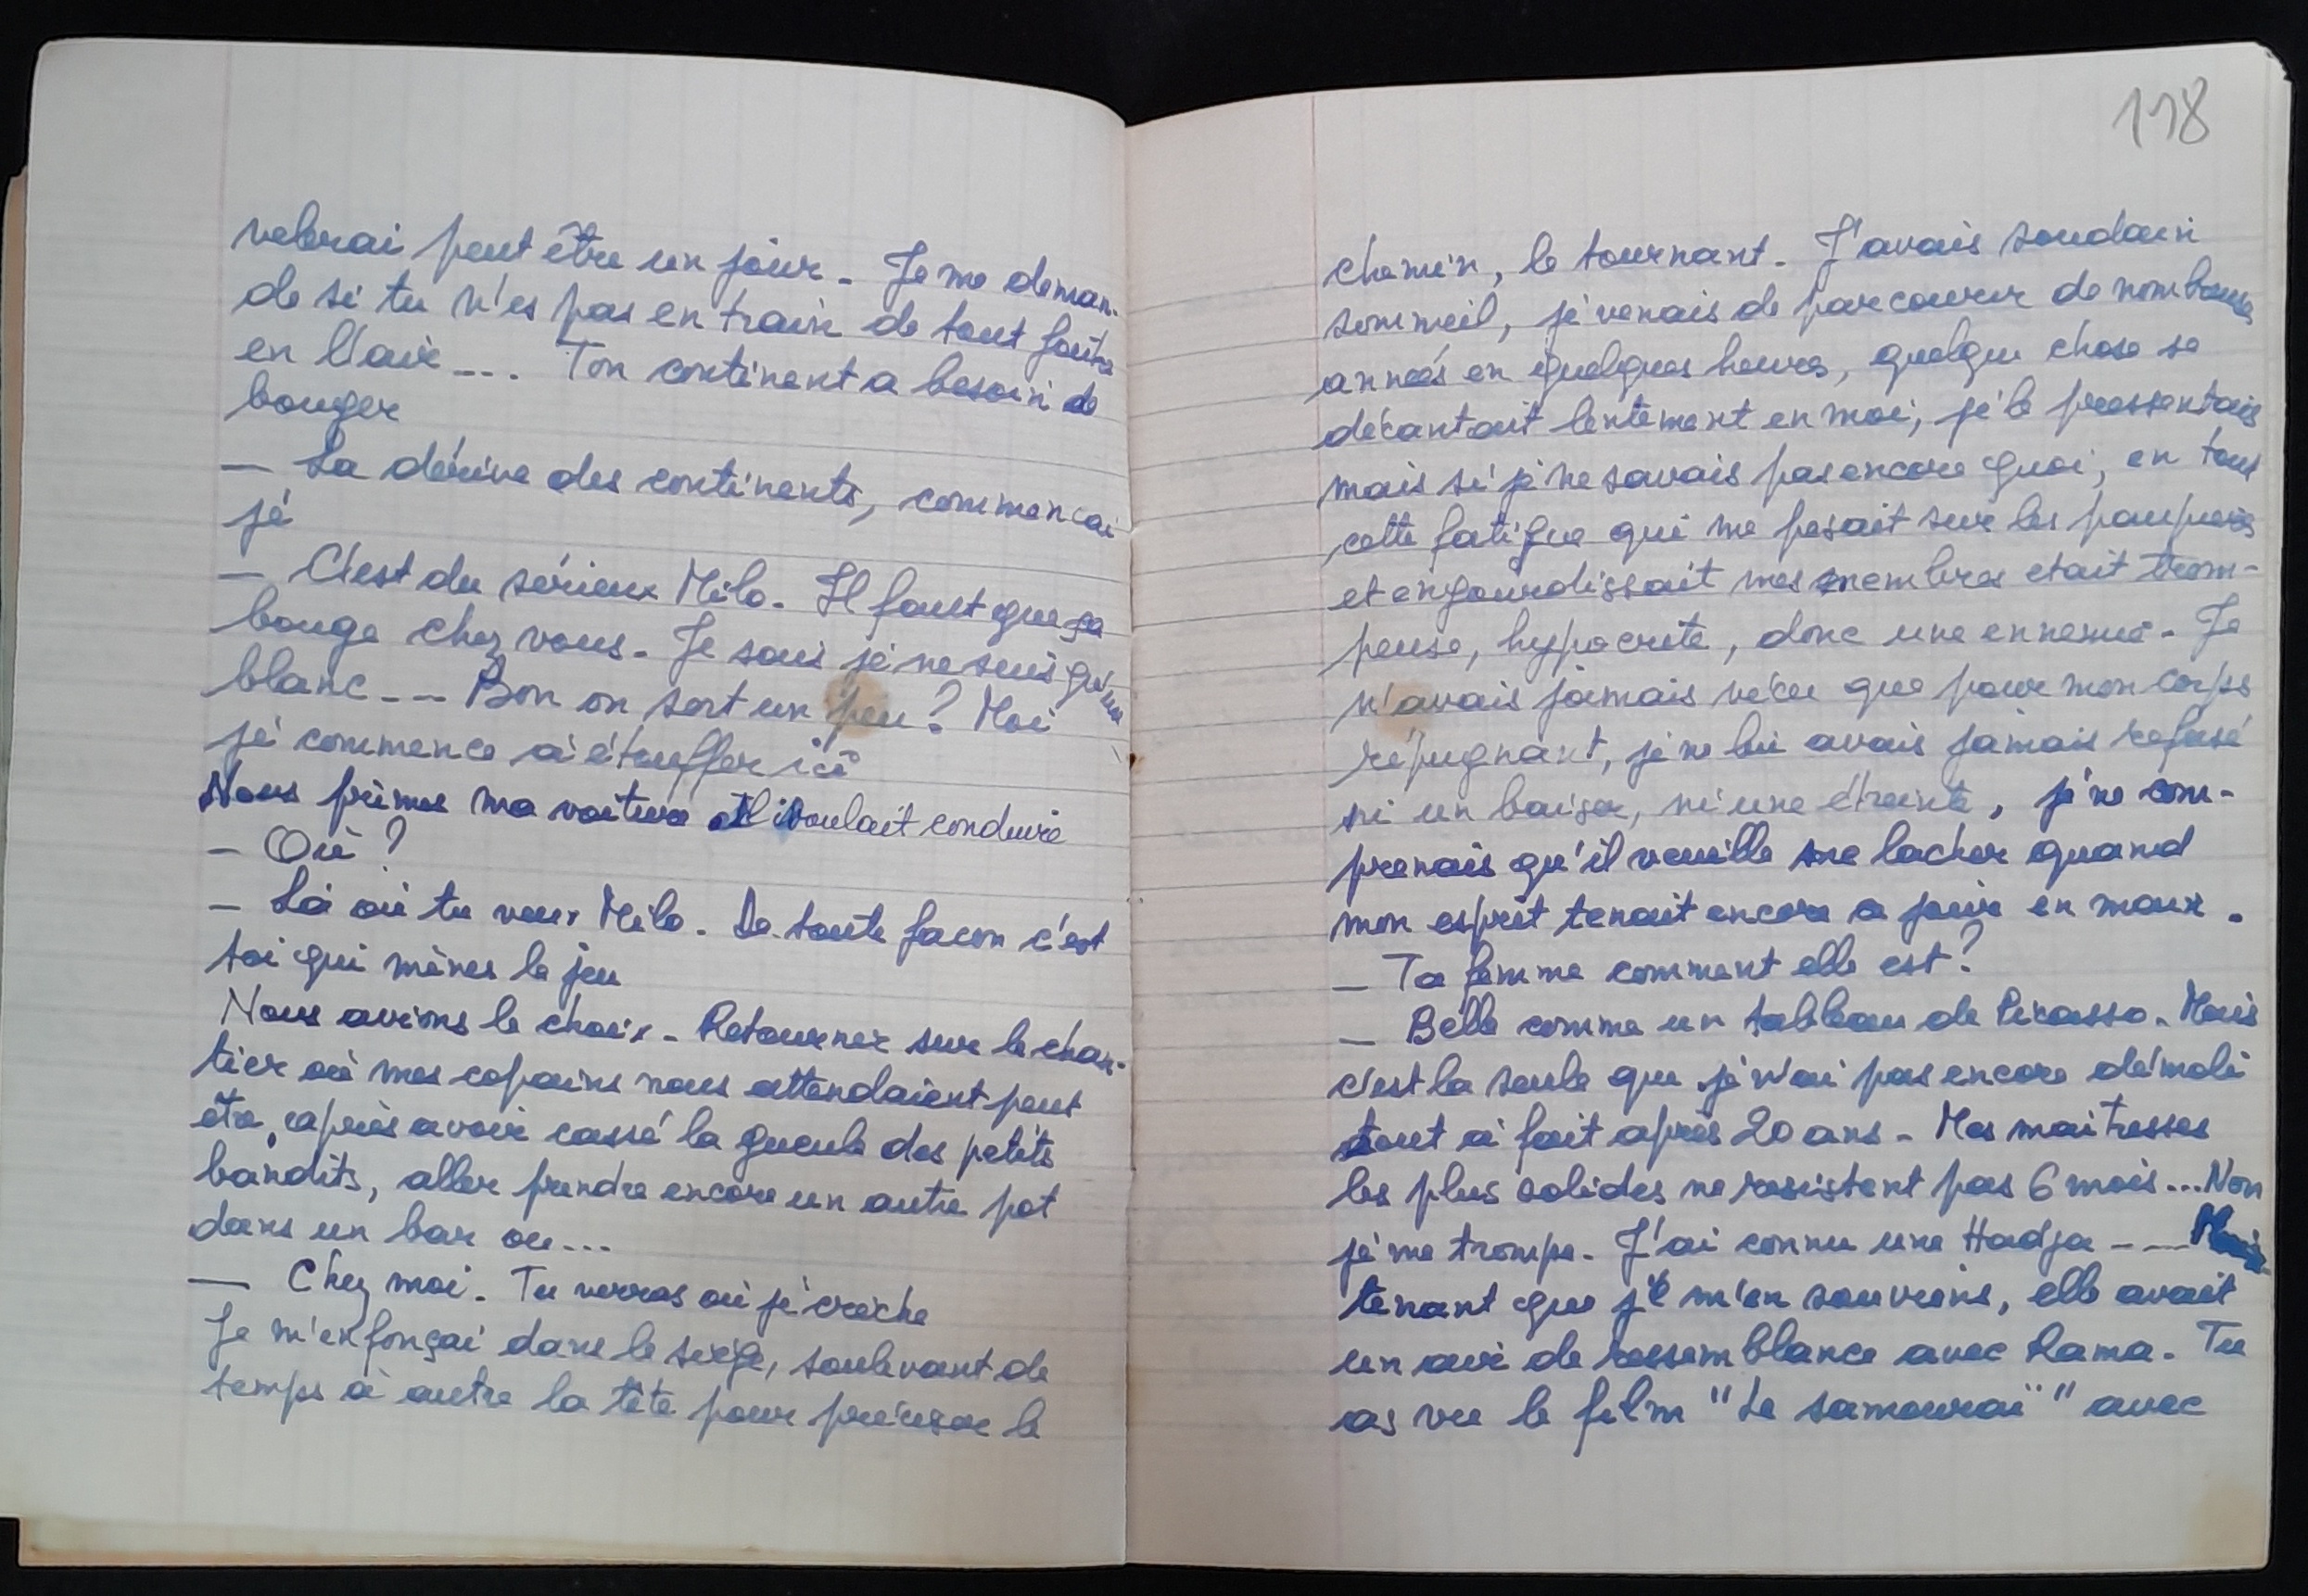 velerai peut être un jour. Je me deman-
de si tu n'es pas en train de tout foutre
en l'air... Ton continent a besoin de
bouger
— La dérive des continents, commencai
je
— C'est du sérieux Milo. Il faut que ça
bouge chez vous. Je sais je ne suis qu'un
blanc... Bon on sort un peu? Moi
je commence à étouffer ici
Nous primes ma voiture Il voulait conduire
— Où?
— Là où tu veux Milo. De toute facon c'est
toi qui mènes le jeu
Nous avions le choix. Retourner sur le chan-
tier où mes copains nous attendaient peut
être, après avoir cassé la gueule des petits
bandits, aller prendre encore un autre pot
dans un bar ou...
— Chez moi. Tu verras où je crèche
Je m'enfonçai dans le siège, soulevant de
temps à autre la tête pour préciser le
118
chemin, le tournant. J'avais soudain
sommeil, je venais de parcourir de nombreuses
années en quelques heures, quelque chose se
décantait lentement en moi, je le pressentais
mais si je ne savais pas encore quoi, en tout
cette fatigue qui me pesait sur les paupieres
et engourdissait mes membres etait trom-
peuse, hypocrite, donc une ennemie. Je
n'avais jamais vécu que pour mon corps
répugnant, je ne lui avais jamais refusé
ni un baiser, ni une étreinte, je ne com-
prenais qu'il veuille me lacher quand
mon esprit tenait encore a jouir en maux.
— Ta femme comment elle est?
— Belle comme un tableau de Picasso. Mais
c'est la seule que je n'ai pas encore démoli
tout à fait après 20 ans. Mes maitresses
les plus solides ne resistent pas 6 mois... Non
je me trompe. J'ai connu une Hadja... Main
tenant que je m'en souviens, elle avait
un air de ressemblance avec Rama. Tu
as vu le film "Le samouraï" avec